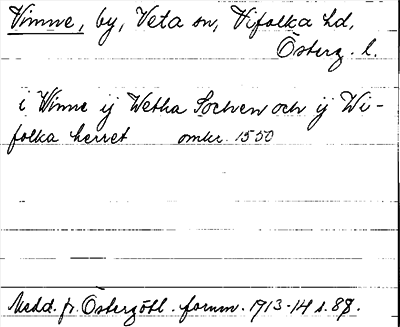 Vimne, by, Veta sn, Vifolka hd,
Österg. l.
i Winne ij Wetha Sochen och ij Wi-
folka herret omkr. 1550
Medd. fr. Östergötl. fornm. 1913-14 s. 88.